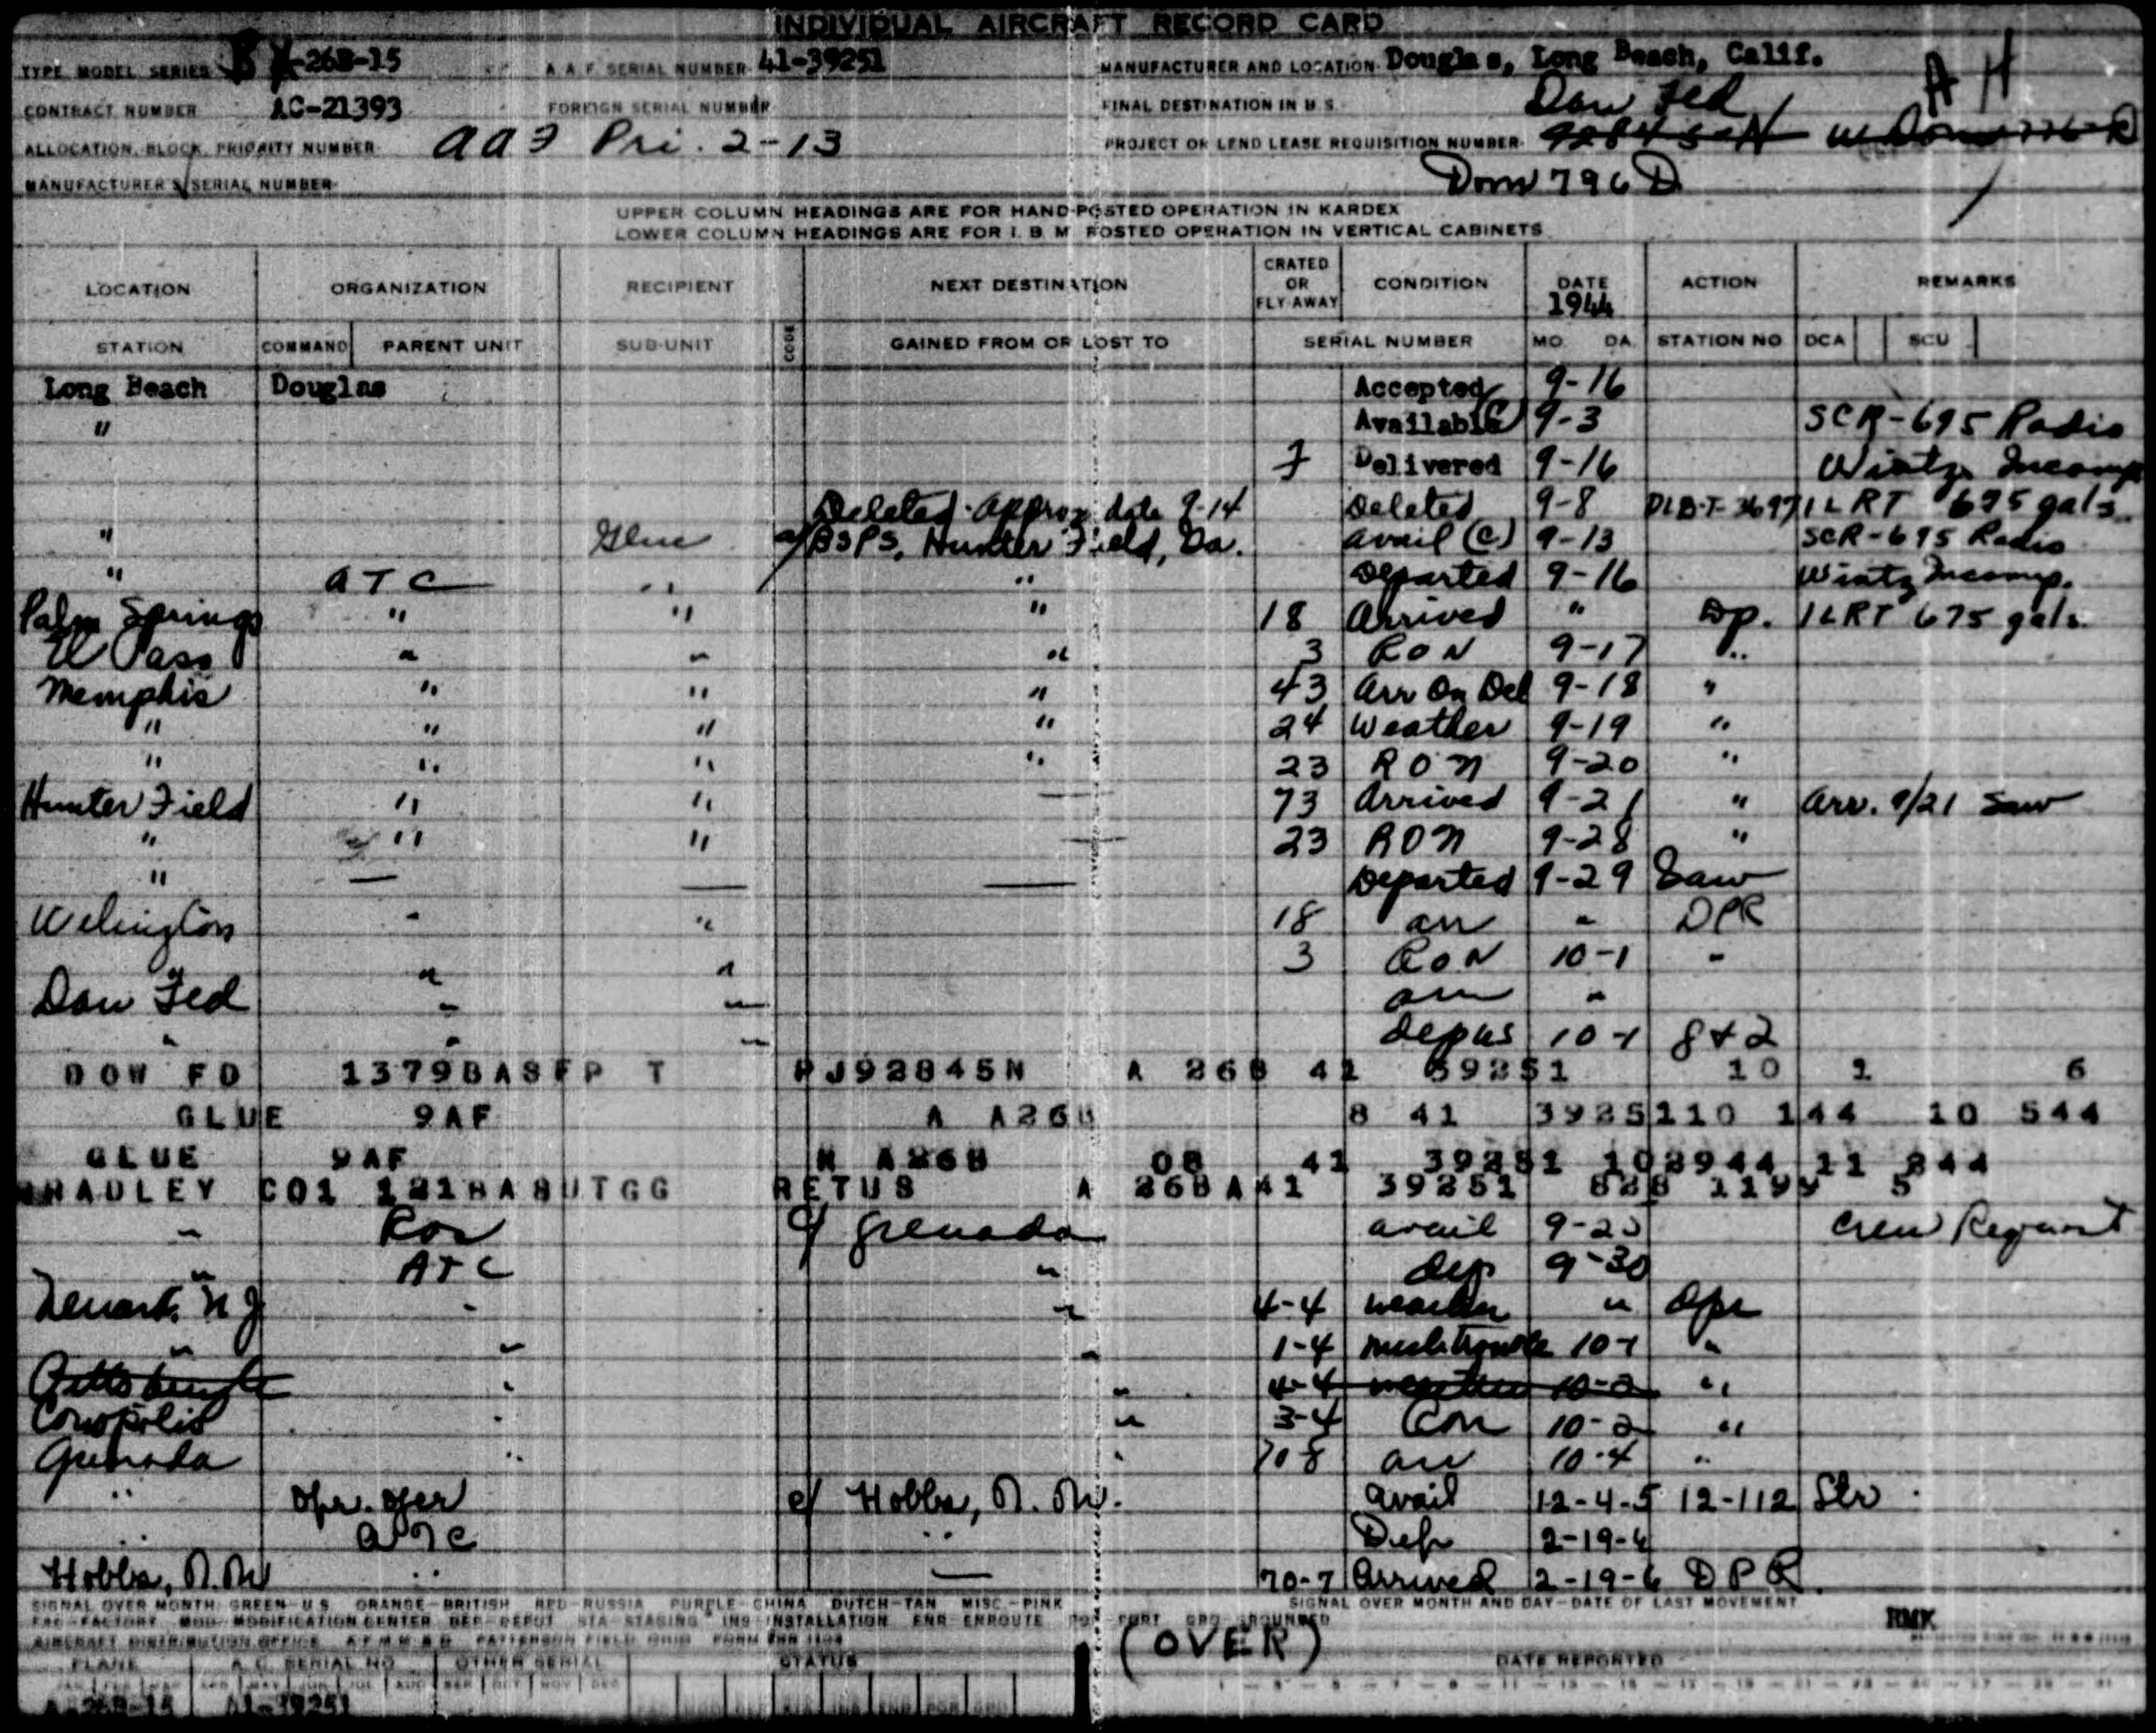 INDIVIDUAL AIRCRAFT RECORD CARD
TYPE MODEL SERIES B -26B-15 A. A. F. SERIAL NUMBER 41-39251 MANUFACTURER AND LOCATION Douglas, Long Beach, Calif. A H
CONTRACT NUMBER AC-21393 FOREIGN SERIAL NUMBER FINAL DESTINATION IN U. S. Dow Fld
ALLOCATION, BLOCK, PRIORITY NUMBER Pri. 2-13 PROJECT OR LEND LEASE REQUISITION NUMBER
MANUFACTURER'S SERIAL NUMBER Dom 796 D
UPPER COLUMN HEADINGS ARE FOR HAND-POSTED OPERATION IN KARDEX
LOWER COLUMN HEADINGS ARE FOR I. B. M. POSTED OPERATION IN VERTICAL CABINETS
LOCATION ORGANIZATION RECIPIENT NEXT DESTINATION CRATED OR FLY-AWAY CONDITION DATE 1944 ACTION REMARKS
STATION COMMAND PARENT UNIT SUB-UNIT CODE GAINED FROM OR LOST TO SERIAL NUMBER MO. DA. STATION NO DCA SCU
Long Beach Douglas Accepted 9-16
" Available 9-3 SCR-695 Radio
Delivered 9-16 Wintz Incomp
Deleted - Approx date 9-14 Deleted 9-8 1 LRT 675 gals.
" Glue BSPS, Hunter Field, Ga. avail (C) 9-13 SCR-695 Radio
" ATC " " Departed 9-16 Wintz Incomp.
Palm Springs " " " 18 Arrived " Dp. 1 LRT 675 gals.
El Paso " " " 3 RON 9-17 "
Memphis " " " 43 Arr On Del 9-18 "
" " " " 24 Weather 9-19 "
" " " " 23 RON 9-20 "
Hunter Field " " — 73 Arrived 9-21 " Arr. 9/21 Saw
" " " — 23 RON 9-28 "
" — — — Departed 9-29 Saw
Wilmington " " 18 arr " DPR
" " 3 RON 10-1 "
Dow Fld " " arr "
" " " 10-1 8+2
DOW FD 1379BASFP T PJ92845N A 26B 41 39251 10 1 6
GLUE 9AF A A26B 8 41 3925110 144 10 544
GLUE 9AF A26B 08 41 39251 102944 11 844
BRADLEY CO1 121BASUTGG RETUS A 26B A41 39251 5
" c/ Grenada avail Crew Requirt
" ATC " dep 9-30
Newark, N J " " 4-4 weather " dpr
" " " 1-4 mech trouble 10-1 "
Pittsburgh " " 4-4 weather 10-2 "
Coropolis " " 3-4 10-2 "
Grenada " " 70 8 arr 10-4 "
" c/ Hobbs, N. M. avail 12-4-5 12-112 Str
" ATC " Dep 2-19-6
Hobbs, N. M " — 70-7 Arrived 2-19-6 DPR
SIGNAL OVER MONTH: GREEN-U.S. ORANGE-BRITISH RED-RUSSIA PURPLE-CHINA DUTCH-TAN MISC.-PINK SIGNAL OVER MONTH AND DAY-DATE OF LAST MOVEMENT
FAC-FACTORY MOD-MODIFICATION CENTER DEP-DEPOT STA-STAGING INS-INSTALLATION ENR-ENROUTE PORT GRD-GROUNDED RMK
AIRCRAFT DISTRIBUTION OFFICE PATTERSON FIELD OHIO
(OVER)
PLANE A. C. SERIAL NO. OTHER SERIAL STATUS DATE REPORTED
A-26B-15 41-39251